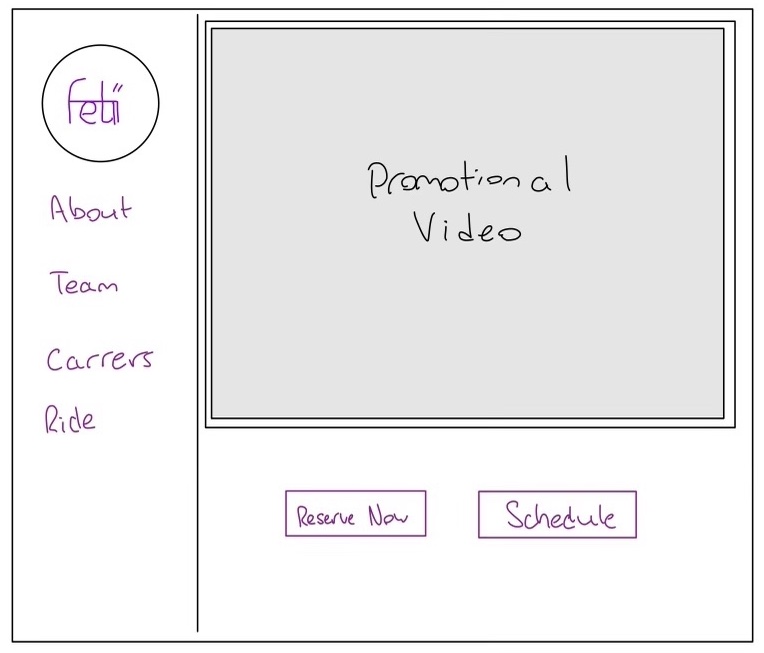 fetii
About
Team
Carrers
Ride
Promotional
Video
Reserve Now
Schedule